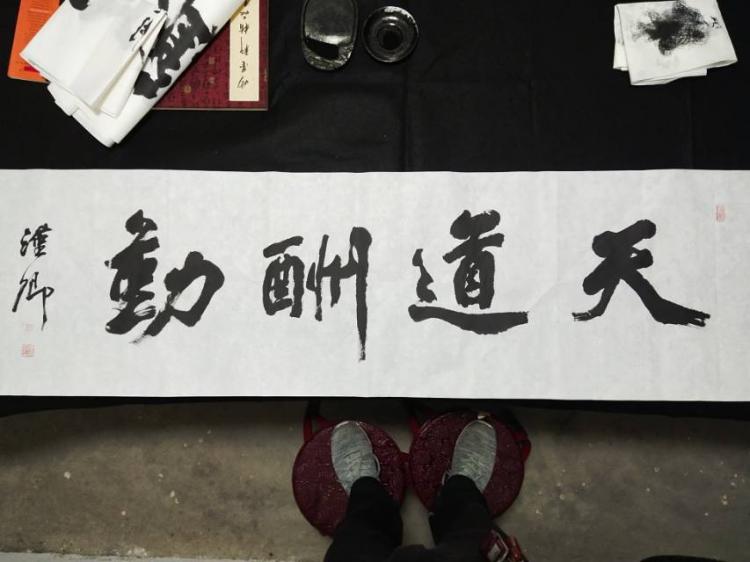 天道酬勤
漢卿